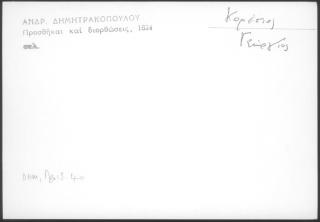 ΑΝΔΡ. ΔΗΜΗΤΡΑΚΟΠΟΥΛΟΥ
Προσθῆκαι καί διορθώσεις, 1624
σελ.
Κορέσσιος
Γεώργιος